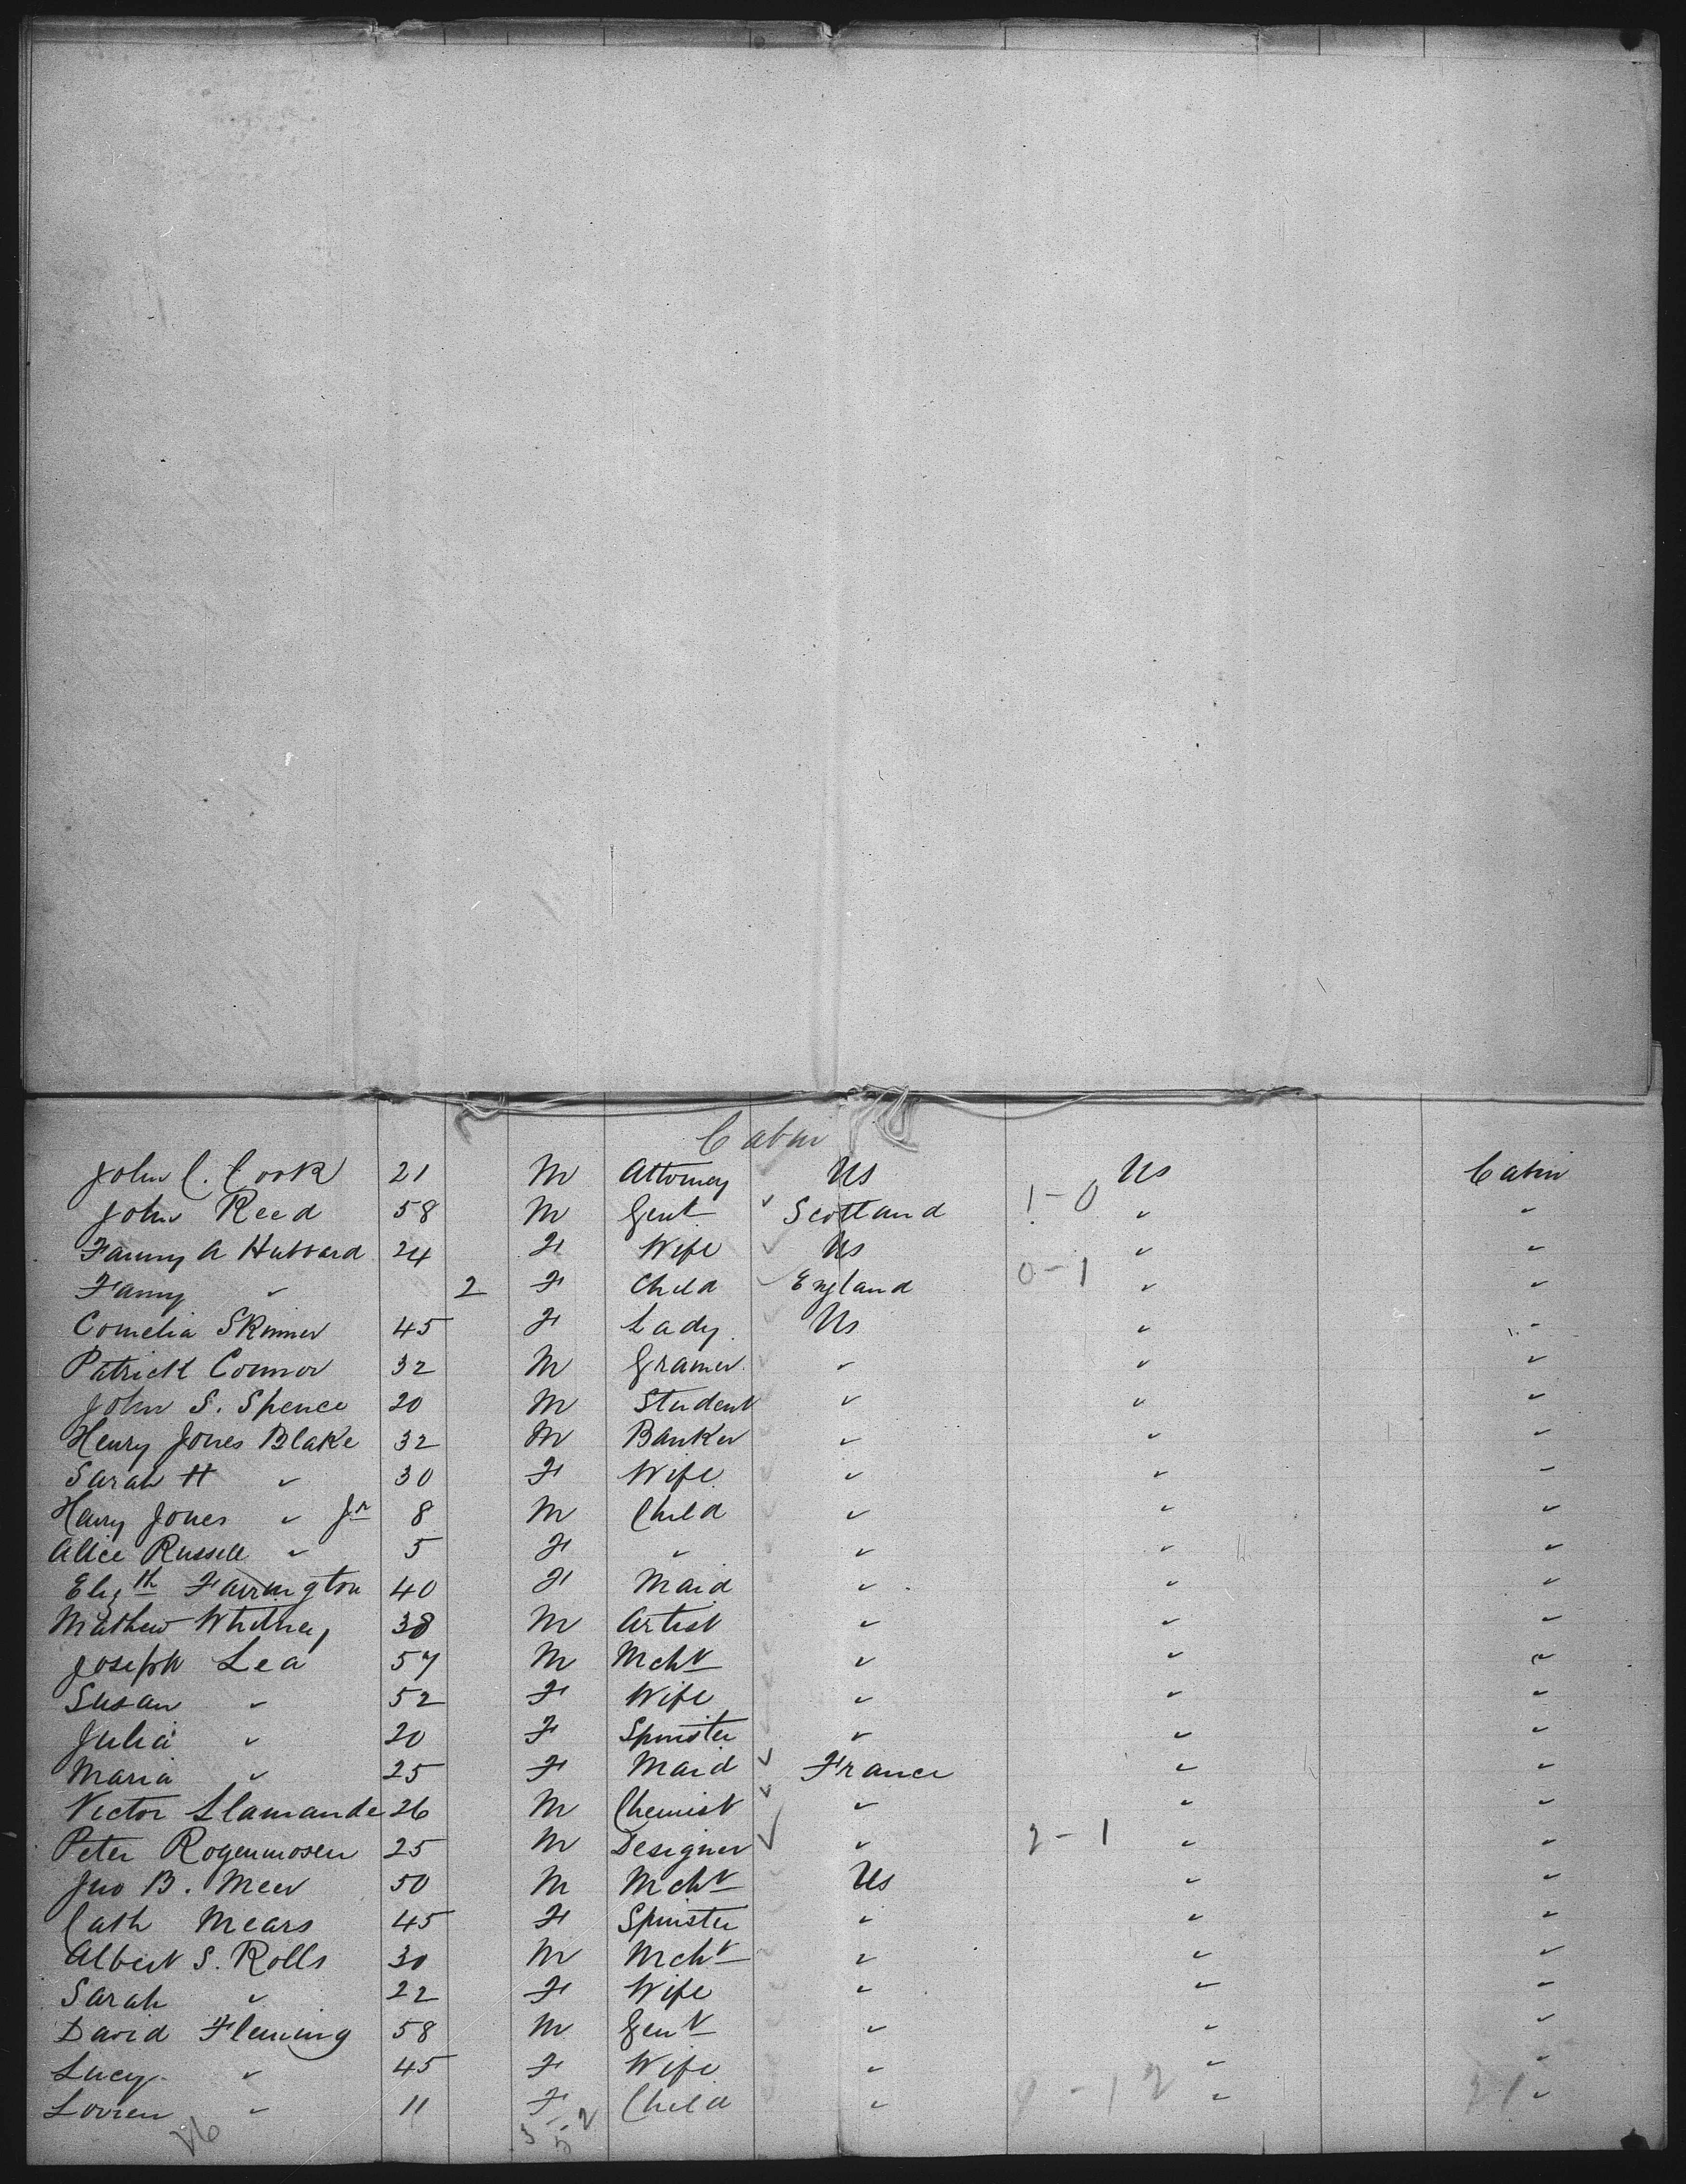 Cabin
John C. Cook 21 M Attorney Us Us Cabin
John Reed 58 M Gent ✓ Scotland 1-0 " "
Fanny A Hubbard 24 F Wife Us " "
Fanny " 2 F Child England 0-1 " "
Cornelia Skinner 45 F Lady Us " "
Patrick Connor 32 M " " "
John S. Spence 20 M Student " " "
Henry Jones Blake 32 M Banker " " "
Sarah H " 30 F Wife " " "
Henry Jones " Jr 8 M Child " " "
Alice Russell " 5 F " " " "
Elizth Farrington 40 F Maid " " "
Mathew Whitney 38 M Artist " " "
Joseph Lea 57 M Mcht " " "
Susan " 52 F Wife " " "
Julia " 20 F Spinster " " "
Maria " 25 F Maid ✓ France " "
Victor Llamande 26 M Chemist ✓ " " "
Peter Rogenmoser 25 M Designer ✓ " 2-1 " "
Jno B. Meer 50 M Mcht Us " "
Cath Mears 45 F Spinster " " "
Albert S. Rolls 30 M Mcht " " "
Sarah " 22 F Wife " " "
David Fleming 58 M Gent " " "
Lucy " 45 F Wife " " "
" 11 F Child " " "